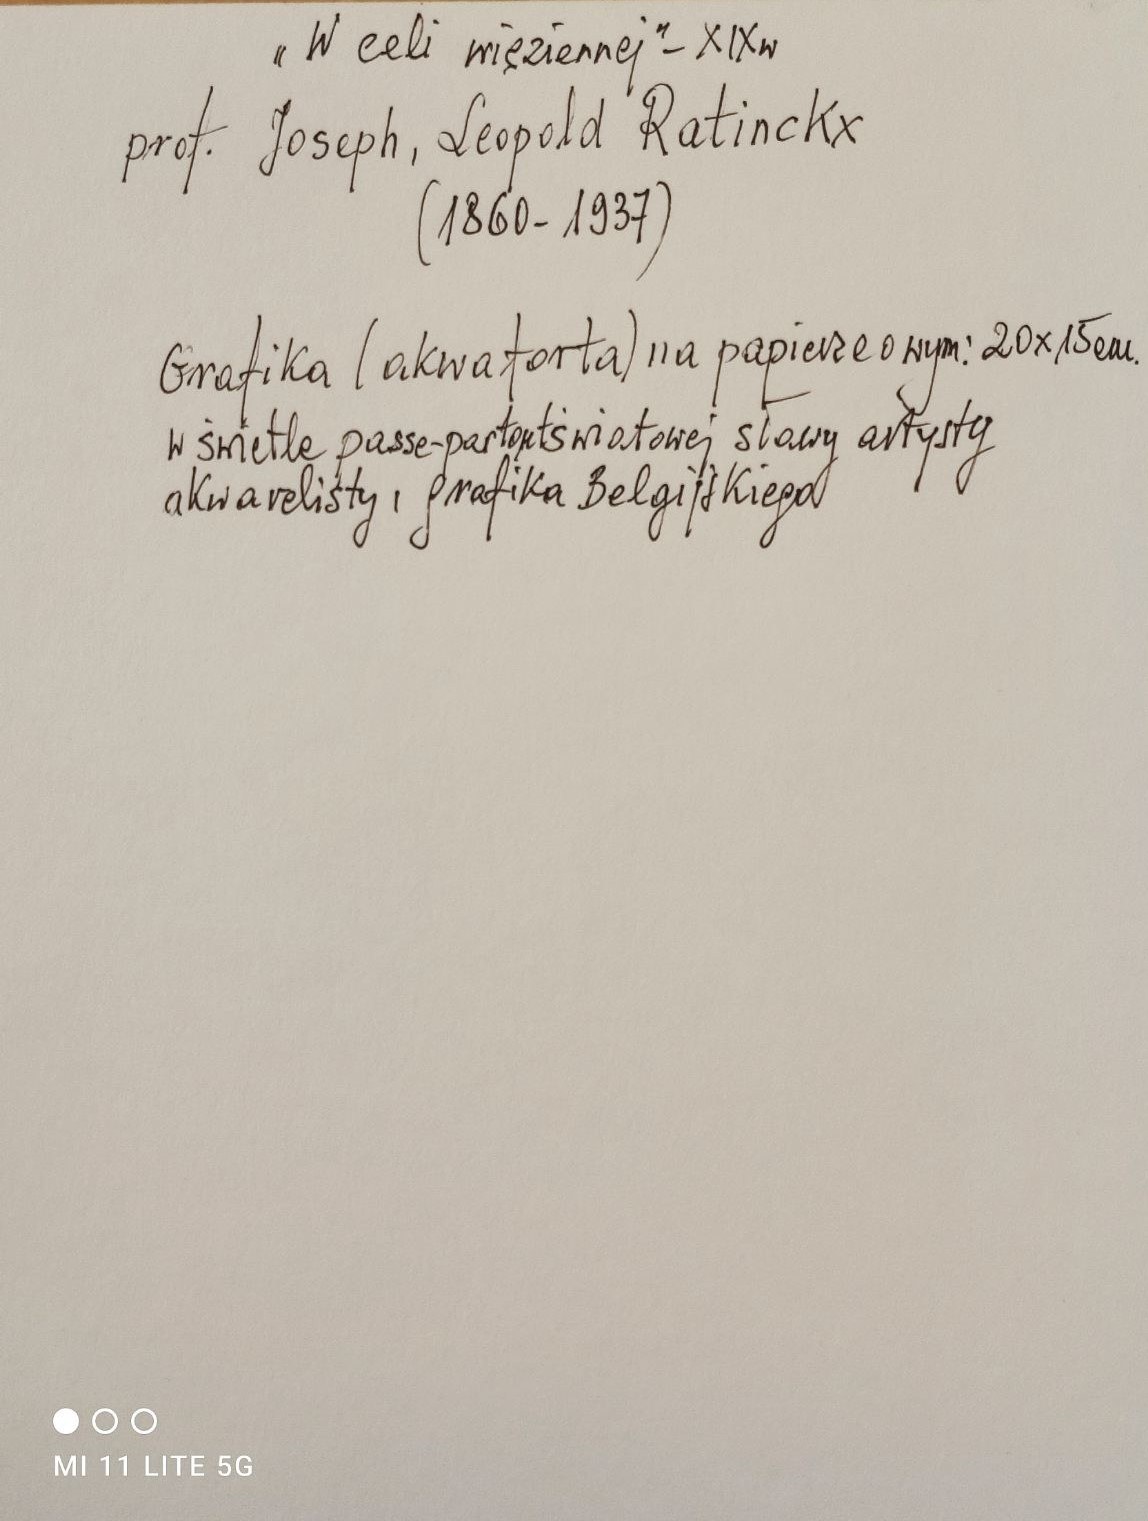 „W celi więziennej” - XIXw
prof. Joseph, Leopold Ratinckx
(1860-1937)
Grafika (akwaforta) na papierze o wym: 20x15cm.
w świetle passe-partout światowej sławy artysty
akwarelisty, grafika Belgijskiego
MI 11 LITE 5G